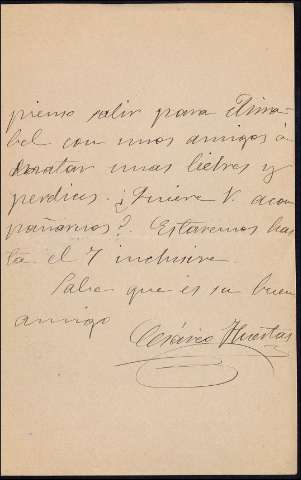 pienso salir para Mirabel con unos amigos á
matar unas liebres y
perdices. ¿Quiere V. acom
pañarnos? Estaremos has
ta el 7 inclusive.
Sabe que es su buen
amigo
Cesáreo Huertas